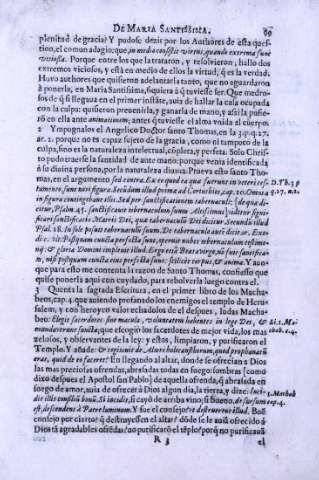 DE MARIA SANTISSIMA. 69
plenitud de gracia? Y pudose dezir por los Authores de esta ques-
tion, el comun adagio; que, in medio consistit virtus, quando extrema sunt
vitiosa. Porque entre los que la trataron, y resolvieron, hallo dos
extremos viciosos, y està en medio de ellos la virtud, q̃ es la verdad.
Huvo authores que quisieron adelantarla tanto, que no aguardaron
à ponerla, en Maria Santissima, siquiera à q̃ tuviesse ser. Que medro-
sos de q̃ si llegava en el primer instãte, avia de hallar la casa ocupada
con la culpa: quisieron prevenirla, y ganarla de mano, y assi la pusie-
rõ en ella ante animationem, antes q̃ tuviesse el alma vnida al cuerpo.
2 Ympugnalos el Angelico Doctor santo Thomas, en la 3.p.q.27.
ar. 2. porque no es capaz sujeto de la gracia, como ni tampoco de la
culpa, sino es la naturaleza intelectual, cõpleta, y perfeta. Solo Chris-
to pudo traerse la santidad de ante mano: porque venia identificada
à su divina persona, por la naturaleza divina. Prueva esto santo Tho-
mas, en el argumento sed contra. Ea ex quod ea quæ fuerunt in veteri tes- D.Th.3.p
tamento, sunt novi figura. Secundum illud prima ad Corinthios, cap. 10. Omnia q.27. ar.2.
in figura contingebant illis. Sed per sanctificationem tabernaculi: (de qua di-
citur, Psalm. 45. sanctificavit tabernaculum suum Altissimus) videtur signi-
ficari sanctificatio Matris Dei, quæ tabernaculũ Dei dicitur. Secundũ illud
Psal. 18. In sole posuit tabernaculum suum. De tabernaculo autẽ dicitur. Exo-
di c. vlt. Postquam cuncta perfecta sunt, operuit nubes tabernaculum testimo-
nij, & gloria Domini implevit illud. Ergo etiã Beata virgo, nõ fuit sanctifica-
ta, nisi postquam cuncta eius perfecta sunt; scilicet corpus, & anima. Y aun-
que para esto me contenta la razon de Santo Thomas, confiesso que
quise ponerla aqui con cuydado, para rebolverla luego contra el.
3 Quenta la sagrada Escritura, en el primer libro de los Macha-
beos, cap. 4. que aviendo profanado los enemigos el templo de Heru-
salem, y con heroyco valor echadolos de el despues, Iudas Macha-
beo: Elegit sacerdotes sine macula, voluntatem habentes in lege Dei, & li.1.Mac
mundaverunt sancta; que escogiò los sacerdotes de mejor vida, los mas hab.c.4.
zelosos, y observantes de la ley: y estos, limpiaron, y purificaron el
Templo. Y añade: & cogitavit de Altari holocaustorum, quod prophanatũ
erat, quid de eo faceret? En llegando al altar, don de se ofrecian à Dios
las mas preciosas ofrendas, abrasadas todas en fuego: sombras (como
dixo despues el Apostol san Pablo) de aquella ofrenda, q̃ abrasada en
fuego de amor, avia de ofrecer à Dios algun dia, la tierra, y dize: Inci-
dit illis consiliũ bonũ. Si incidit, si cayò de arriba vino; si bonum, de sursum 1.Machab
est, descendens à Patre luminum. Y fue el consejo? vt destruerent illud. Buẽ cap.4.
consejo por cierto! q̃ destruyessen el altar? dõde se le aviã ofrecido à
Dios tã agradables ofrẽdas? no purificarõ el tẽplo? porq̃ no purificavã
R 3 el